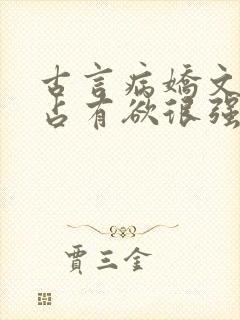 古言病嬌文
占有欲很强
賈三金